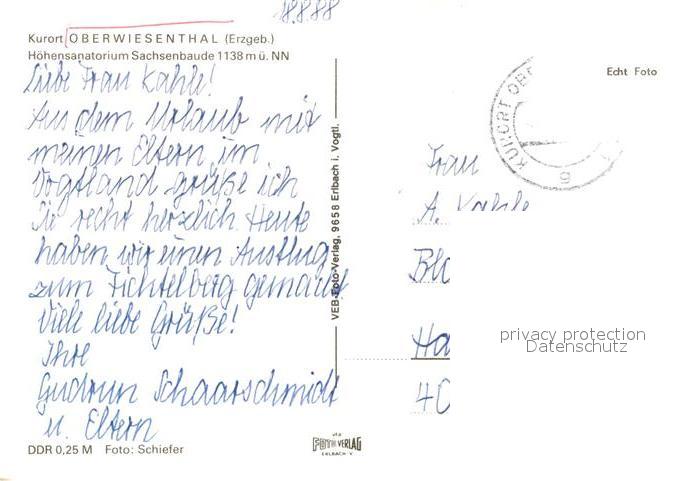 18.8.88
Kurort OBERWIESENTHAL (Erzgeb.)
Höhensanatorium Sachsenbaude 1138 m ü. NN
Liebe Frau Kahle!
Aus dem Urlaub mit
meinen Eltern im
Vogtland grüße ich
Sie recht herzlich. Heute
haben wir einen Ausflug
zum Fichtelberg gemacht
Viele liebe Grüße!
Ihre
Gudrun Schaarschmidt
u. Eltern
DDR 0,25 M Foto: Schiefer
VEB-Foto-Verlag, 9658 Erlbach i. Vogtl.
FOTO VERLAG
ERLBACH V.
Echt Foto
KURORT OBE
g
Frau
A. Kahle
Blo
Ha
40
privacy protection
Datenschutz